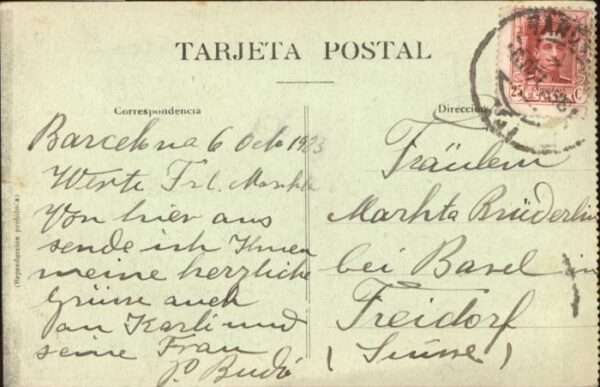 TARJETA POSTAL
Correspondencia
Barcelona 6 Octo 1923
Werte Frl. Markta
Von hier aus
sende ich Ihnen
meine herzliche
Grüsse auch
an Karli und
seine Frau
P. Budó
(Reproducción prohibida)
Dirección
Fräulein
Markta Brüderlin
bei Basel in
Freidorf
(Suisse)
25 C